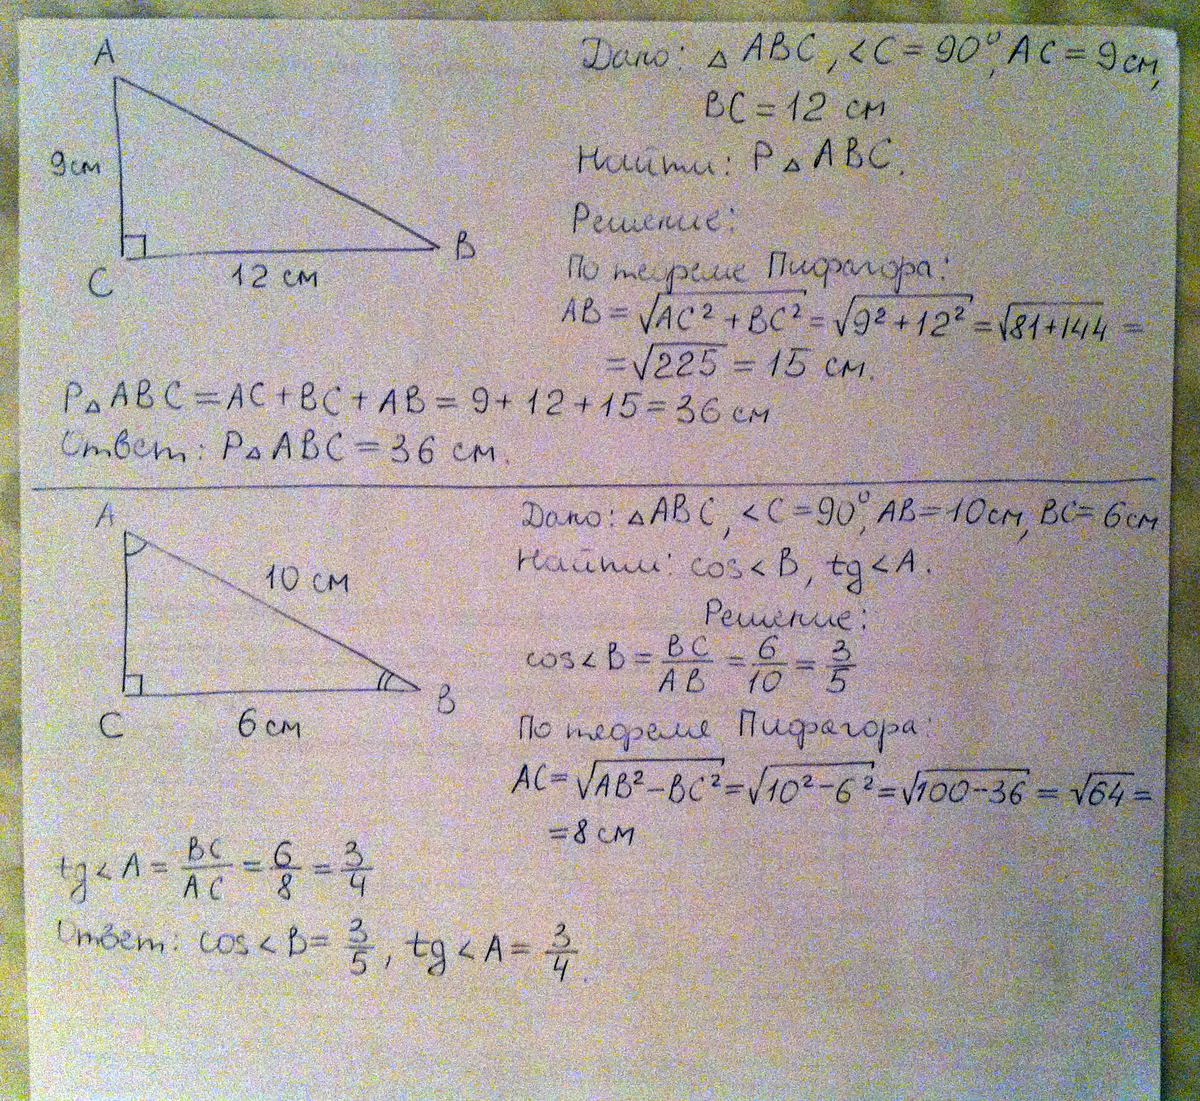 A
9см
C
12 см
B
Дано: △ ABC, <C = 90°, AC = 9см,
BC = 12 см
Найти: P△ABC.
Решение:
По теореме Пифагора:
AB = √(AC² + BC²) = √(9² + 12²) = √(81 + 144) =
= √225 = 15 см.
P△ABC = AC + BC + AB = 9 + 12 + 15 = 36 см
Ответ: P△ABC = 36 см.
A
10 см
C
6 см
B
Дано: △ABC, <C = 90°, AB = 10см, BC = 6см
Найти: cos<B, tg<A.
Решение:
cos<B = BC/AB = 6/10 = 3/5
По теореме Пифагора:
AC = √(AB² − BC²) = √(10² − 6²) = √(100 − 36) = √64 =
= 8 см
tg<A = BC/AC = 6/8 = 3/4
Ответ: cos<B = 3/5, tg<A = 3/4.